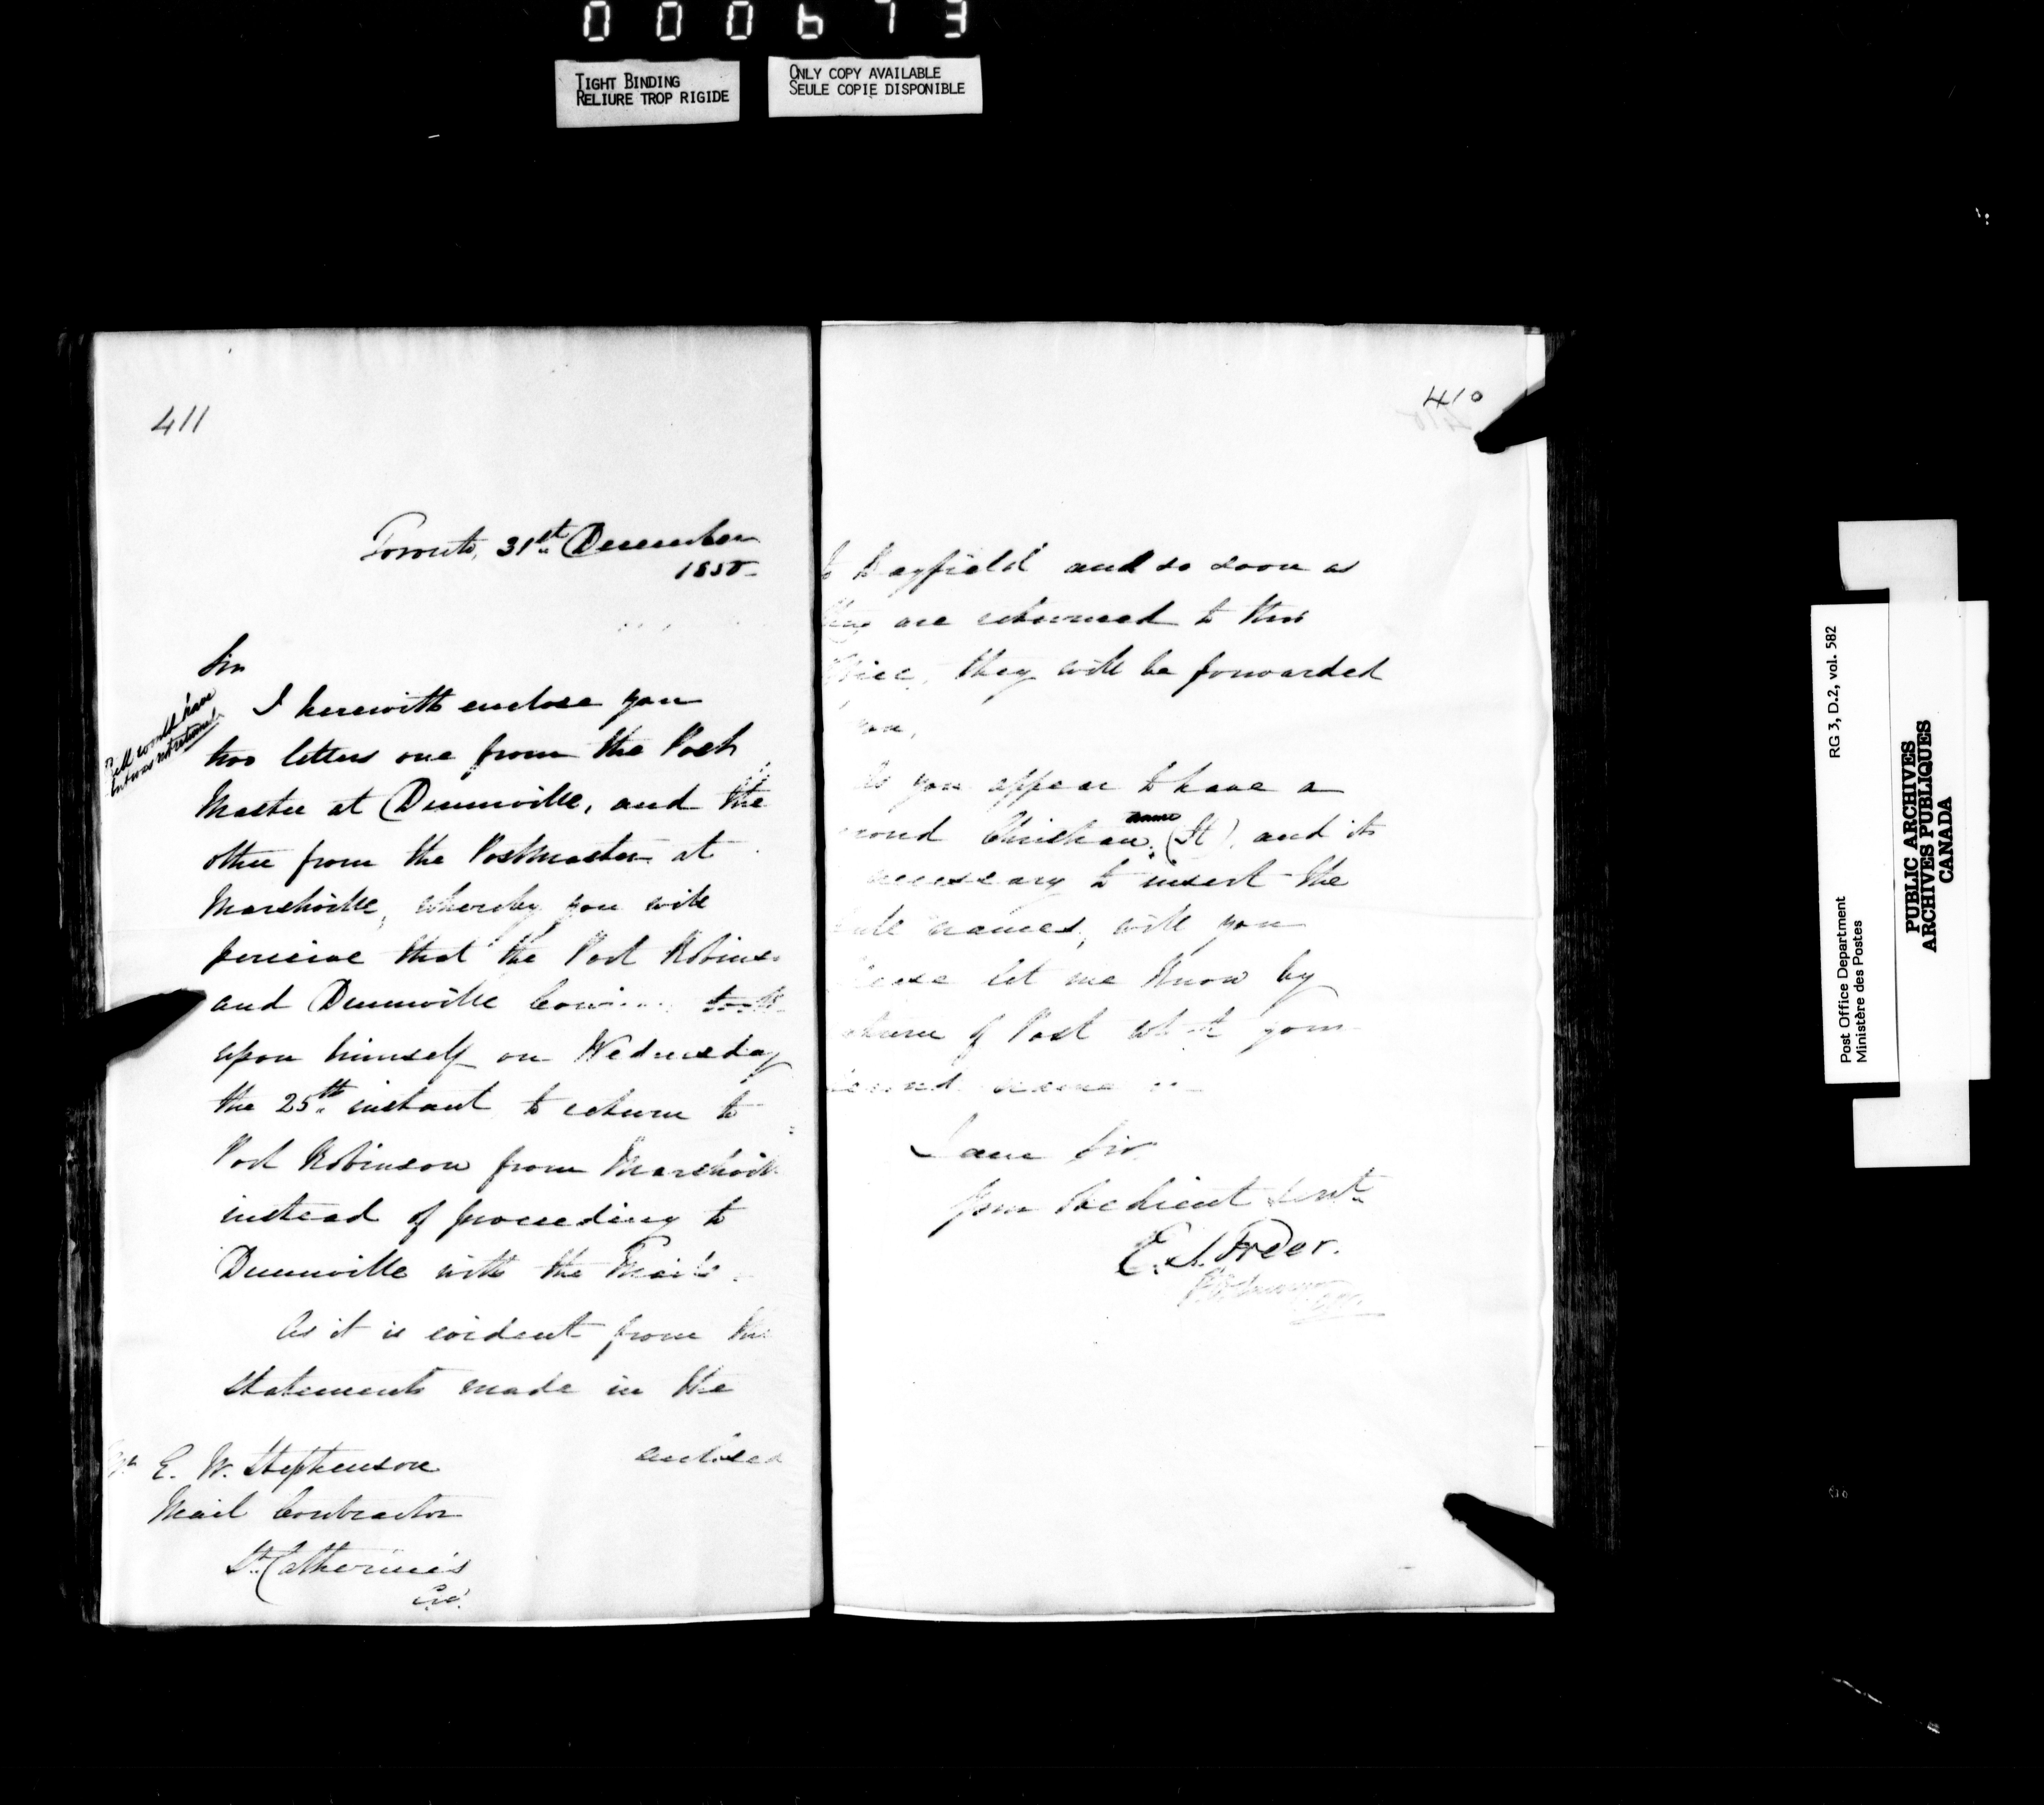 000673
TIGHT BINDING
RELIURE TROP RIGIDE
ONLY COPY AVAILABLE
SEULE COPIE DISPONIBLE
411
Toronto, 31st December
1850
Sir
I herewith enclose you
two letters one from the Post
Master at Dunnville, and the
other from the Postmaster at
Marshville, whereby you will
perceive that the Port Robinso
and Dunnville took
upon himself on Wednesday
the 25th instant to return to
Port Robinson from Marshvill
instead of proceeding to
Dunnville with the Mails.
As it is evident from the
statements made in the
enclosed
Mr E. W. Stephenson
Mail Contractor
St. Catherine's
C.W.
would have
but was not
410
to Bayfield and so soon as
they are returned to this
ffice, they will be forwarded
you,
As you appear to have a
cond Christian name (St) and its
necessary to insert the
names, will you
lease let me know by
eturn of Post what your
econd name is
I am Sir
Your Obedient Servt
E. S. Freer.
Post Office Department
Ministère des Postes
RG 3, D.2, vol. 582
PUBLIC ARCHIVES
ARCHIVES PUBLIQUES
CANADA